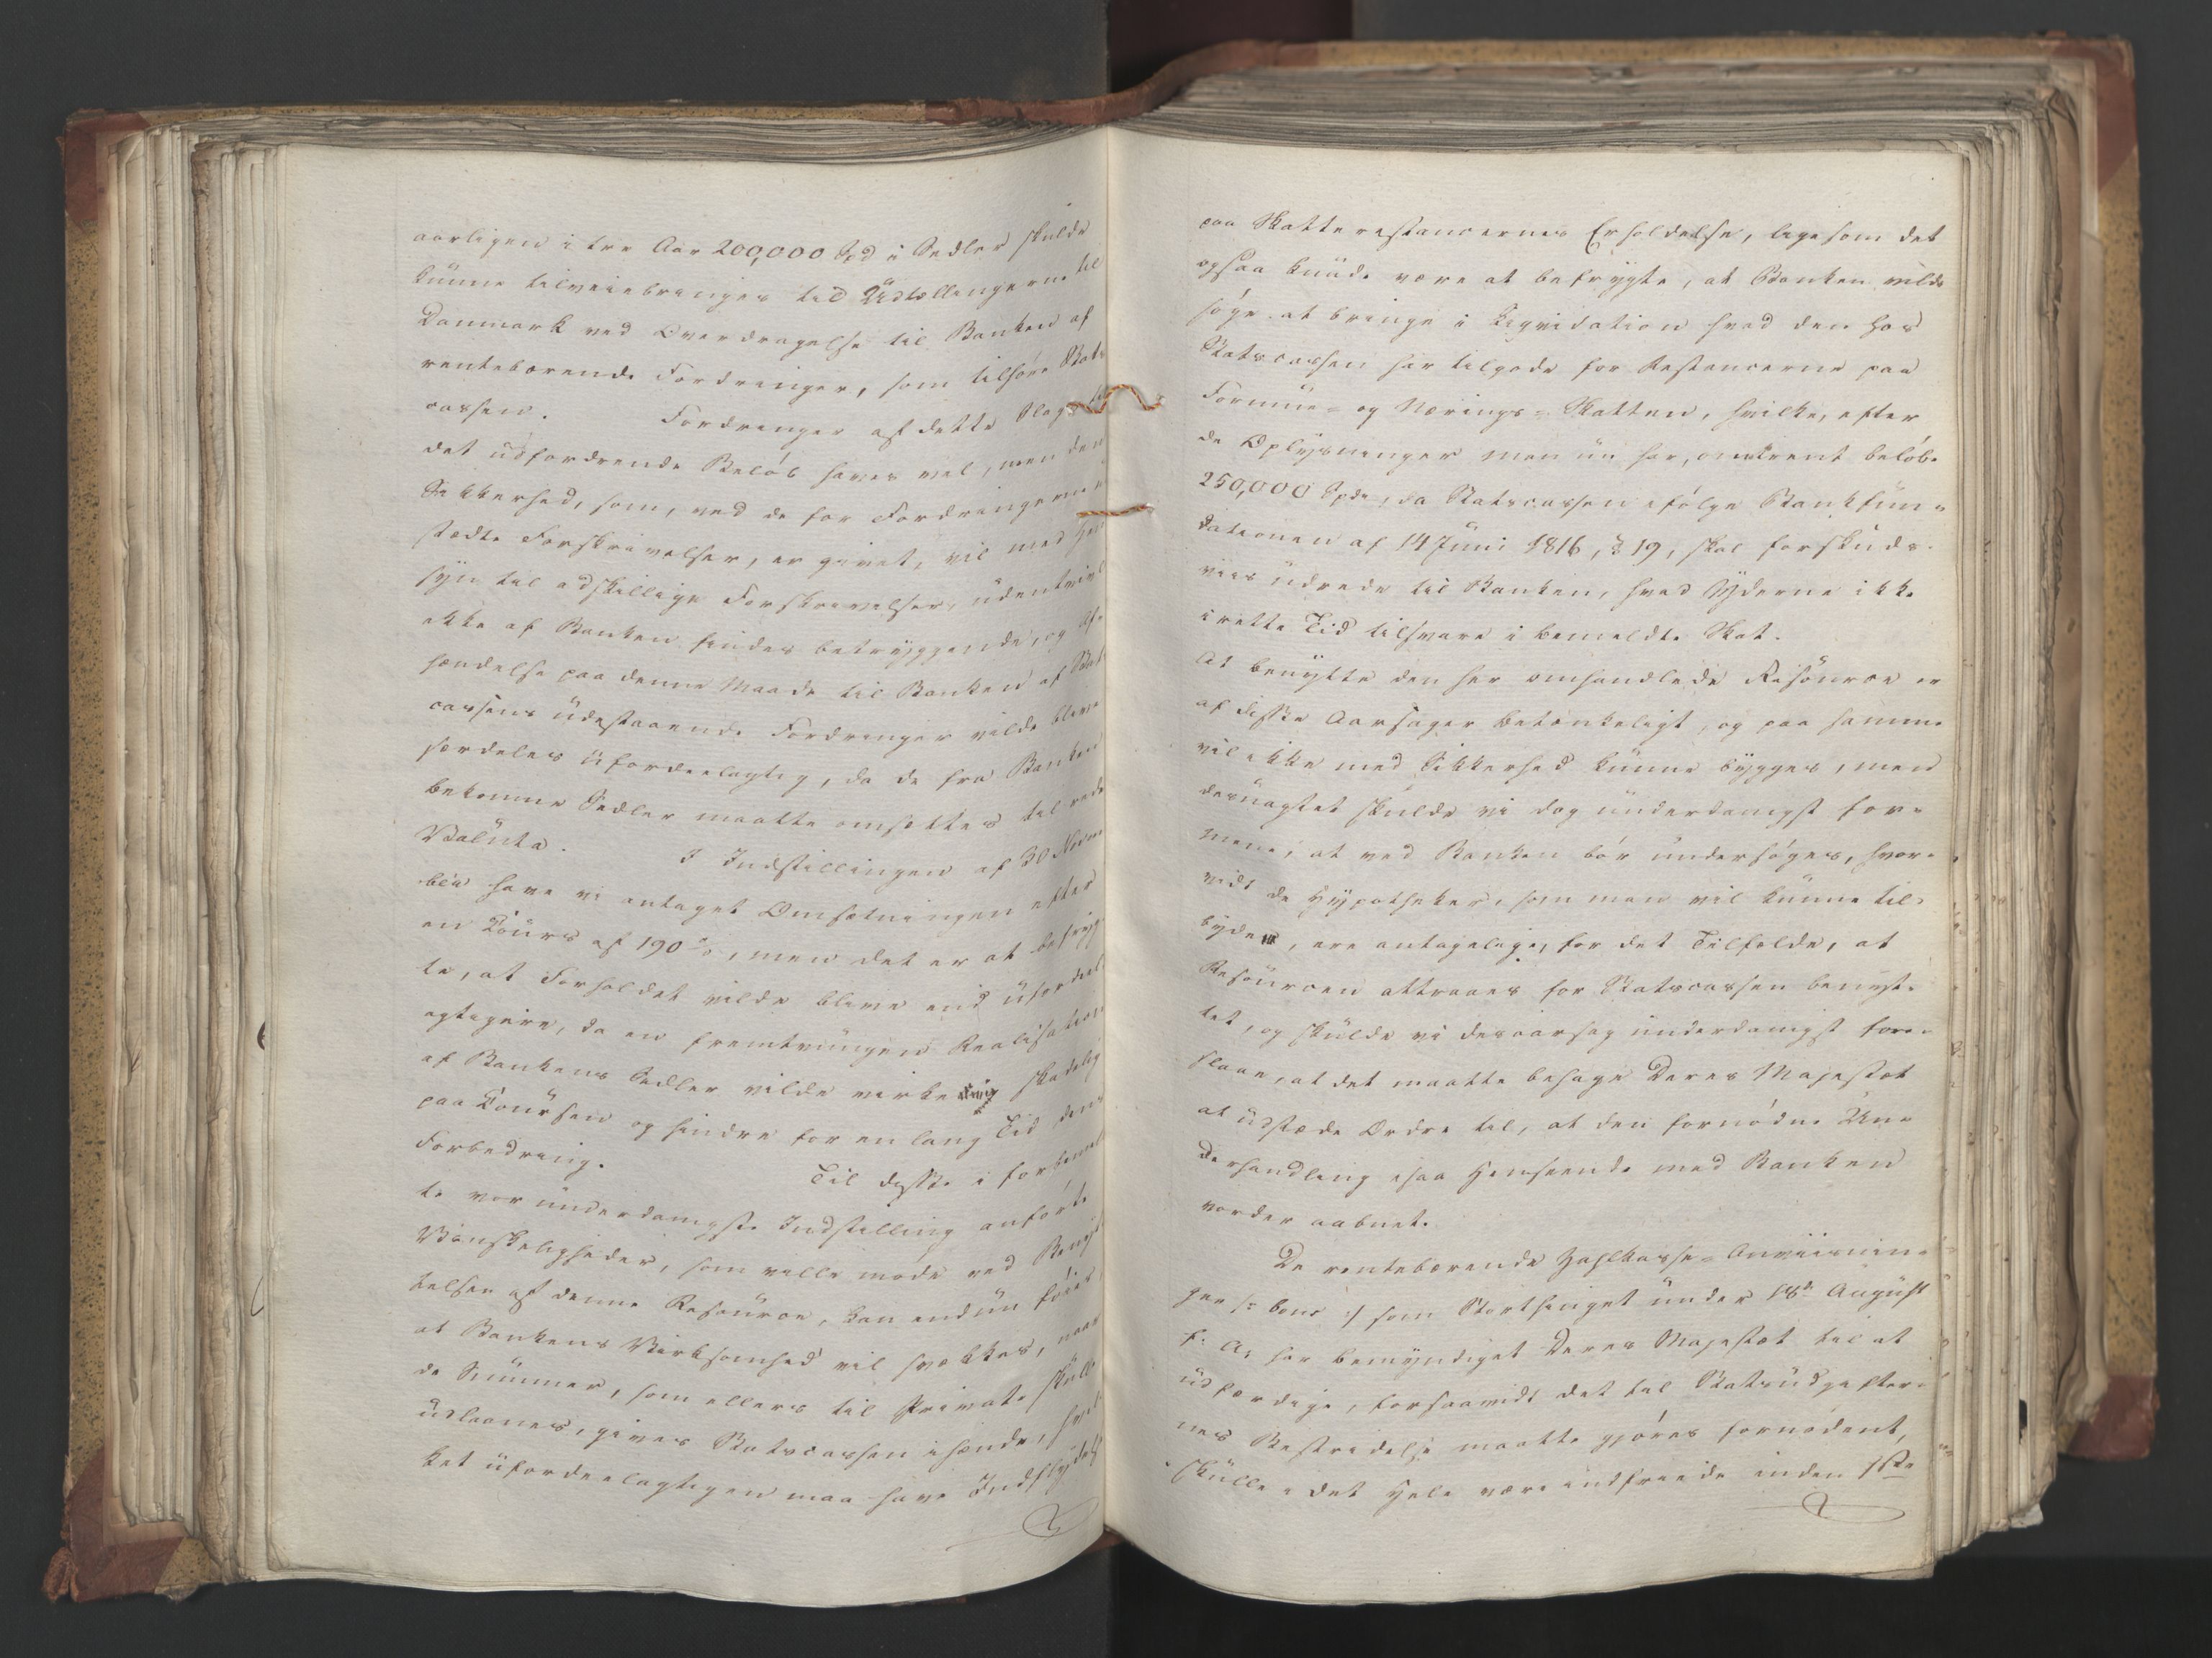 aarligen i tre Aar 200,000 Spd i Sedler skulde
kunne tilveiebringes til Udtællingerne til
Danmark ved Overdragelse til Banken af
rentebærende Fordringer, som tilhøre Stats
cassen. Fordringer af dette Slags til
det udfordrende Beløb haves vel, men den
Sikkerhed, som, ved de for Fordringerne
stædte Forskrivelser, er givet, vil med Hen
syn til adskillige Forskrivelser, udentvivl
ikke af Banken findes betryggende, og Af-
hændelse paa denne Maade til Banken af Stats
cassens udestaaende Fordringer vilde blive
særdeles ufordeelagtig, da de fra Banken
bekomne Sedler maatte omsættes til rede
Valuta. I Indstillingen af 30 Novem
ber have vi antaget Omsætningen efter
en Cours af 190 %, men det er at befryg
te, at Forholdet vilde blive end ufordeel
agtigere, da en fremtvungen Realisation
af Bankens Sedler vilde virke skadelig
paa Coursen og hindre for en lang Tid dens
Forbedring. Til disse i forbemeld
te vor underdanigste Indstilling anførte
Vanskeligheder, som ville møde ved Benyt
telsen af denne Resource, kan endnu føies
at Bankens Virksomhed vil svækkes, naar
de Summer, som ellers til Private skulle
udlaanes, gives Statscassen ihænde, hvil
ket ufordeelagtigen maa have Indflydelse
paa Skatterestancernes Erholdelse, ligesom det
ogsaa kunde være at befrygte, at Banken vilde
søge at bringe i Liqvidation hvad den hos
Statscassen har tilgode for Restancerne paa
Formue- og Nærings-Skatten, hvilke, efter
de Oplysninger man nu har, omtrent beløbe
250,000 Spdr, da Statscassen ifølge Bankfun-
dationen af 14 Juni 1816, § 19, skal forskuds-
viis udrede til Banken, hvad Yderne ikke
i rette Tid tilsvare i bemeldte Skat.
At benytte den her omhandlede Resource er
af disse Aarsager betænkeligt, og paa samme
vil ikke med Sikkerhed kunne bygges, men
desuagtet skulde vi dog underdanigst for-
mene, at ved Banken bør undersøges, hvor-
vidt de Hypotheker, som man vil kunne til-
byde, ere antagelige, for det Tilfælde, at
Resourcen attraaes for Statscassen benyt-
tet, og skulde vi desaarsag underdanigst fore-
slaae, at det maatte behage Deres Majestæt
at udstæde Ordre til, at den fornødne Un-
derhandling isaa Henseende med Banken
vorder aabnet.
De rentebærende Zahlkasse-Anviisnin-
ger /: bons :/ som Storthinget under 18de August
f. A. har bemyndiget Deres Majestæt til at
udfærdige, forsaavidt det til Statsudgifter-
nes Bestridelse maatte gjøres fornødent,
skulle i det Hele være indfriede inden 1ste